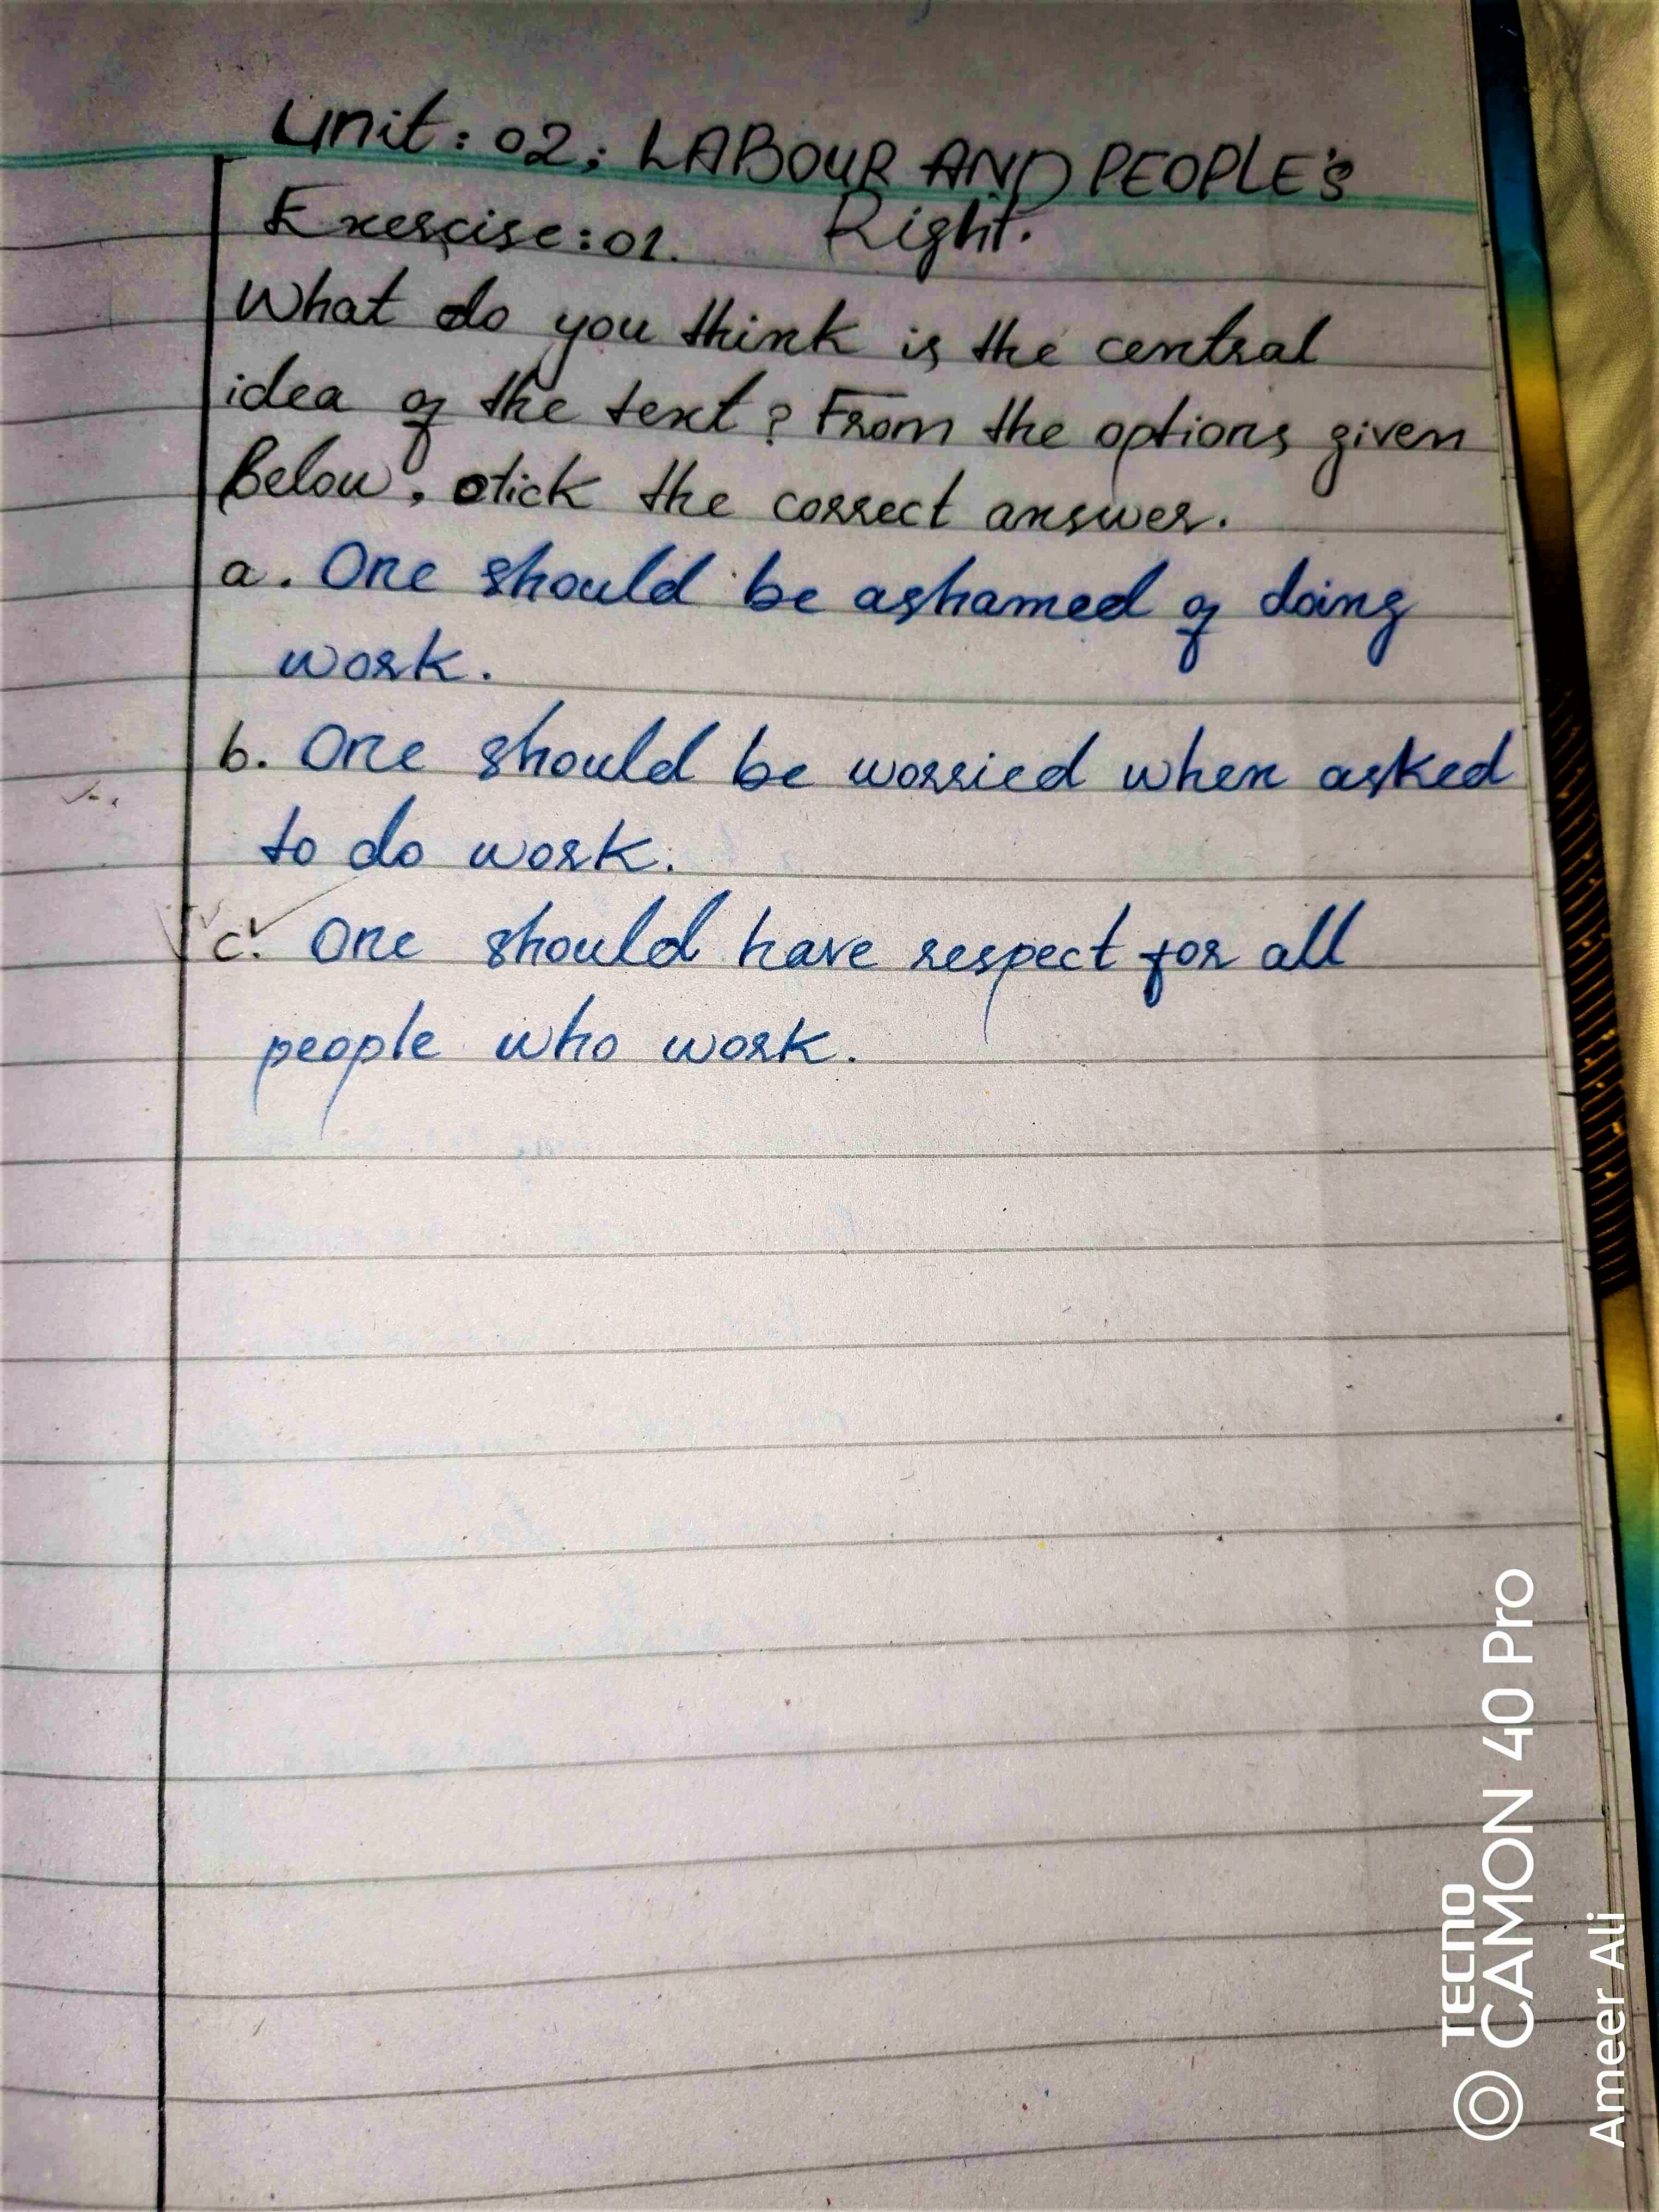 Unit: 02; LABOUR AND PEOPLE's
Exercise: 01. Right.
What do you think is the central
idea of the text? From the options given
Below, tick the correct answer.
a. One should be ashamed of doing
work.
b. One should be worried when asked
to do work.
c. One should have respect for all
people who work.
TECNO
CAMON 40 Pro
Ameer Ali